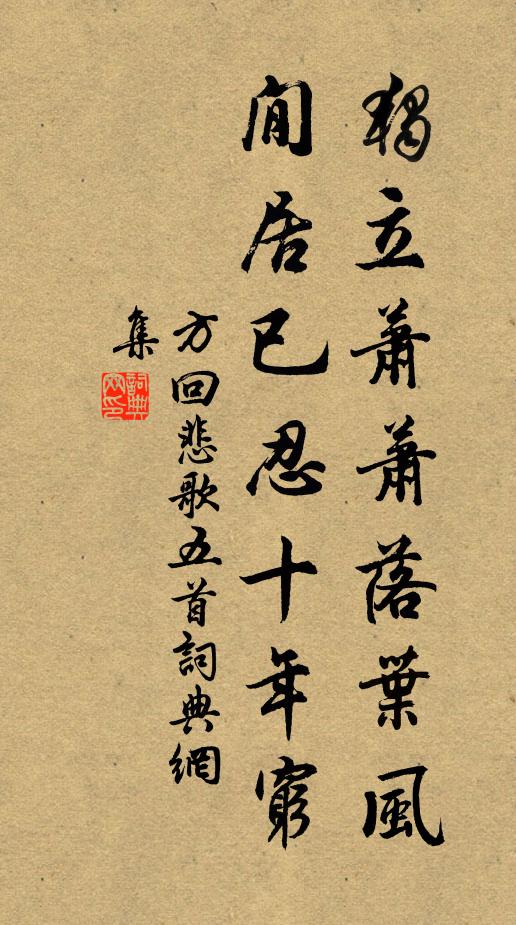 獨立蕭蕭落葉風
閒居已忍十年窮
方回悲歌五首詞典網
集
詞典網印